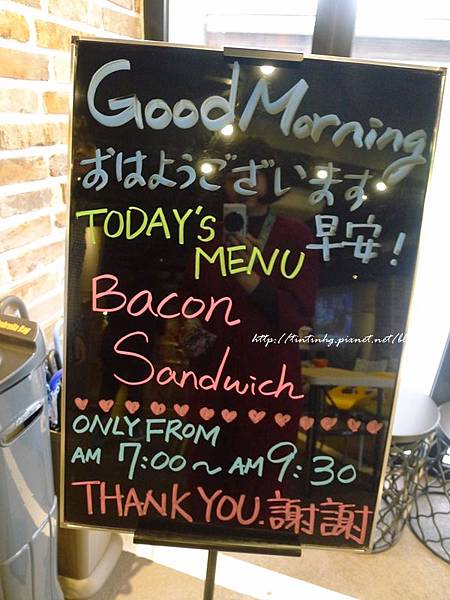 Good Morning
おはようございます
早安!
TODAY'S
MENU
Bacon
Sandwich
http://tintinhg.pixnet.net/bl
ONLY FROM
AM 7:00~AM 9:30
THANK YOU.謝謝